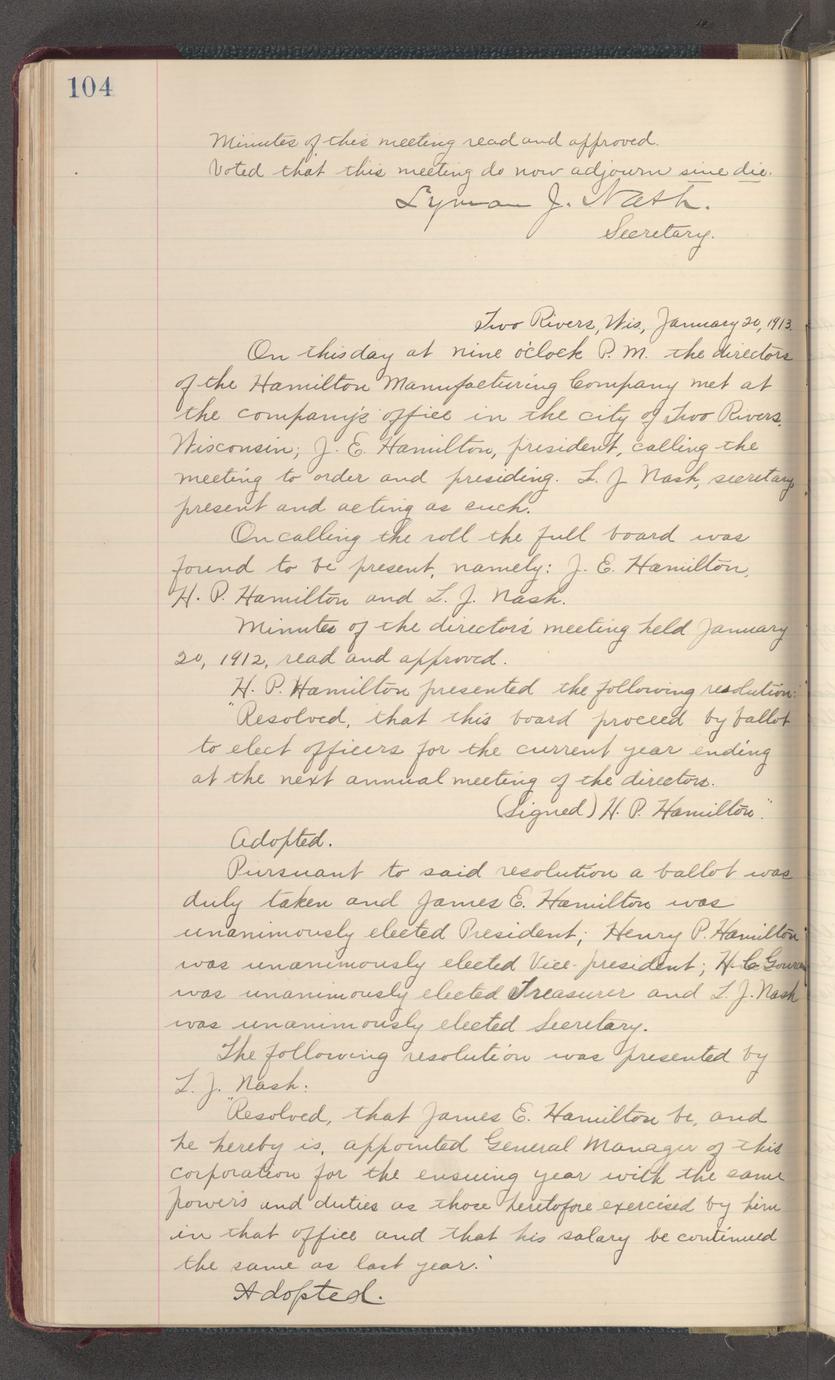 104
Minutes of this meeting read and approved.
Voted that this meeting do now adjourn sine die.
Lyman J. Nash.
Secretary.
Two Rivers, Wis, January 20, 1913.
On this day at nine o'clock P.M. the directors
of the Hamilton Manufacturing Company met at
the company's office in the city of Two Rivers,
Wisconsin; J. E. Hamilton, president, calling the
meeting to order and presiding. L. J. Nash, secretary,
present and acting as such.
On calling the roll the full board was
found to be present, namely: J. E. Hamilton,
H. P. Hamilton and L. J. Nash.
Minutes of the directors' meeting held January
20, 1912, read and approved.
H. P. Hamilton presented the following resolution:
"Resolved, that this board proceed by ballot
to elect officers for the current year ending
at the next annual meeting of the directors.
(Signed) H. P. Hamilton."
Adopted.
Pursuant to said resolution a ballot was
duly taken and James E. Hamilton was
unanimously elected President; Henry P. Hamilton
was unanimously elected Vice-president; H. C.
was unanimously elected Treasurer and L. J. Nash
was unanimously elected Secretary.
The following resolution was presented by
L. J. Nash:
"Resolved, that James E. Hamilton be, and
he hereby is, appointed General Manager of this
corporation for the ensuing year with the same
powers and duties as those heretofore exercised by him
in that office and that his salary be continued
the same as last year."
Adopted.